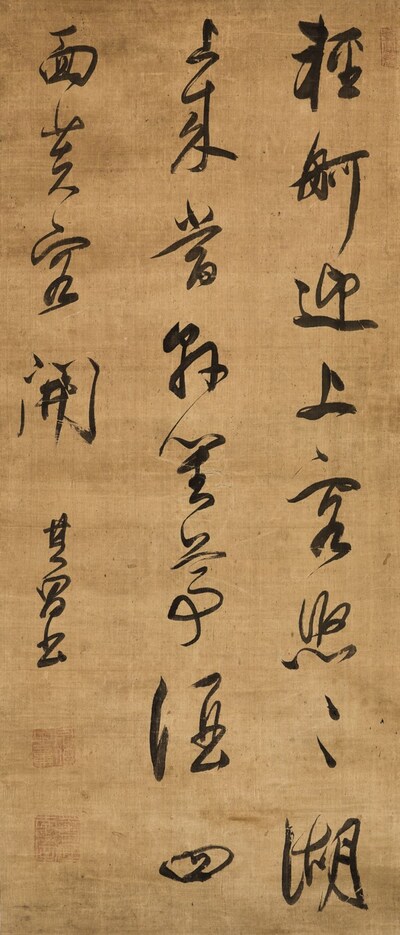 輕舸迎上客悠〻湖
上來當軒對尊酒四
面芙蓉開
其昌書